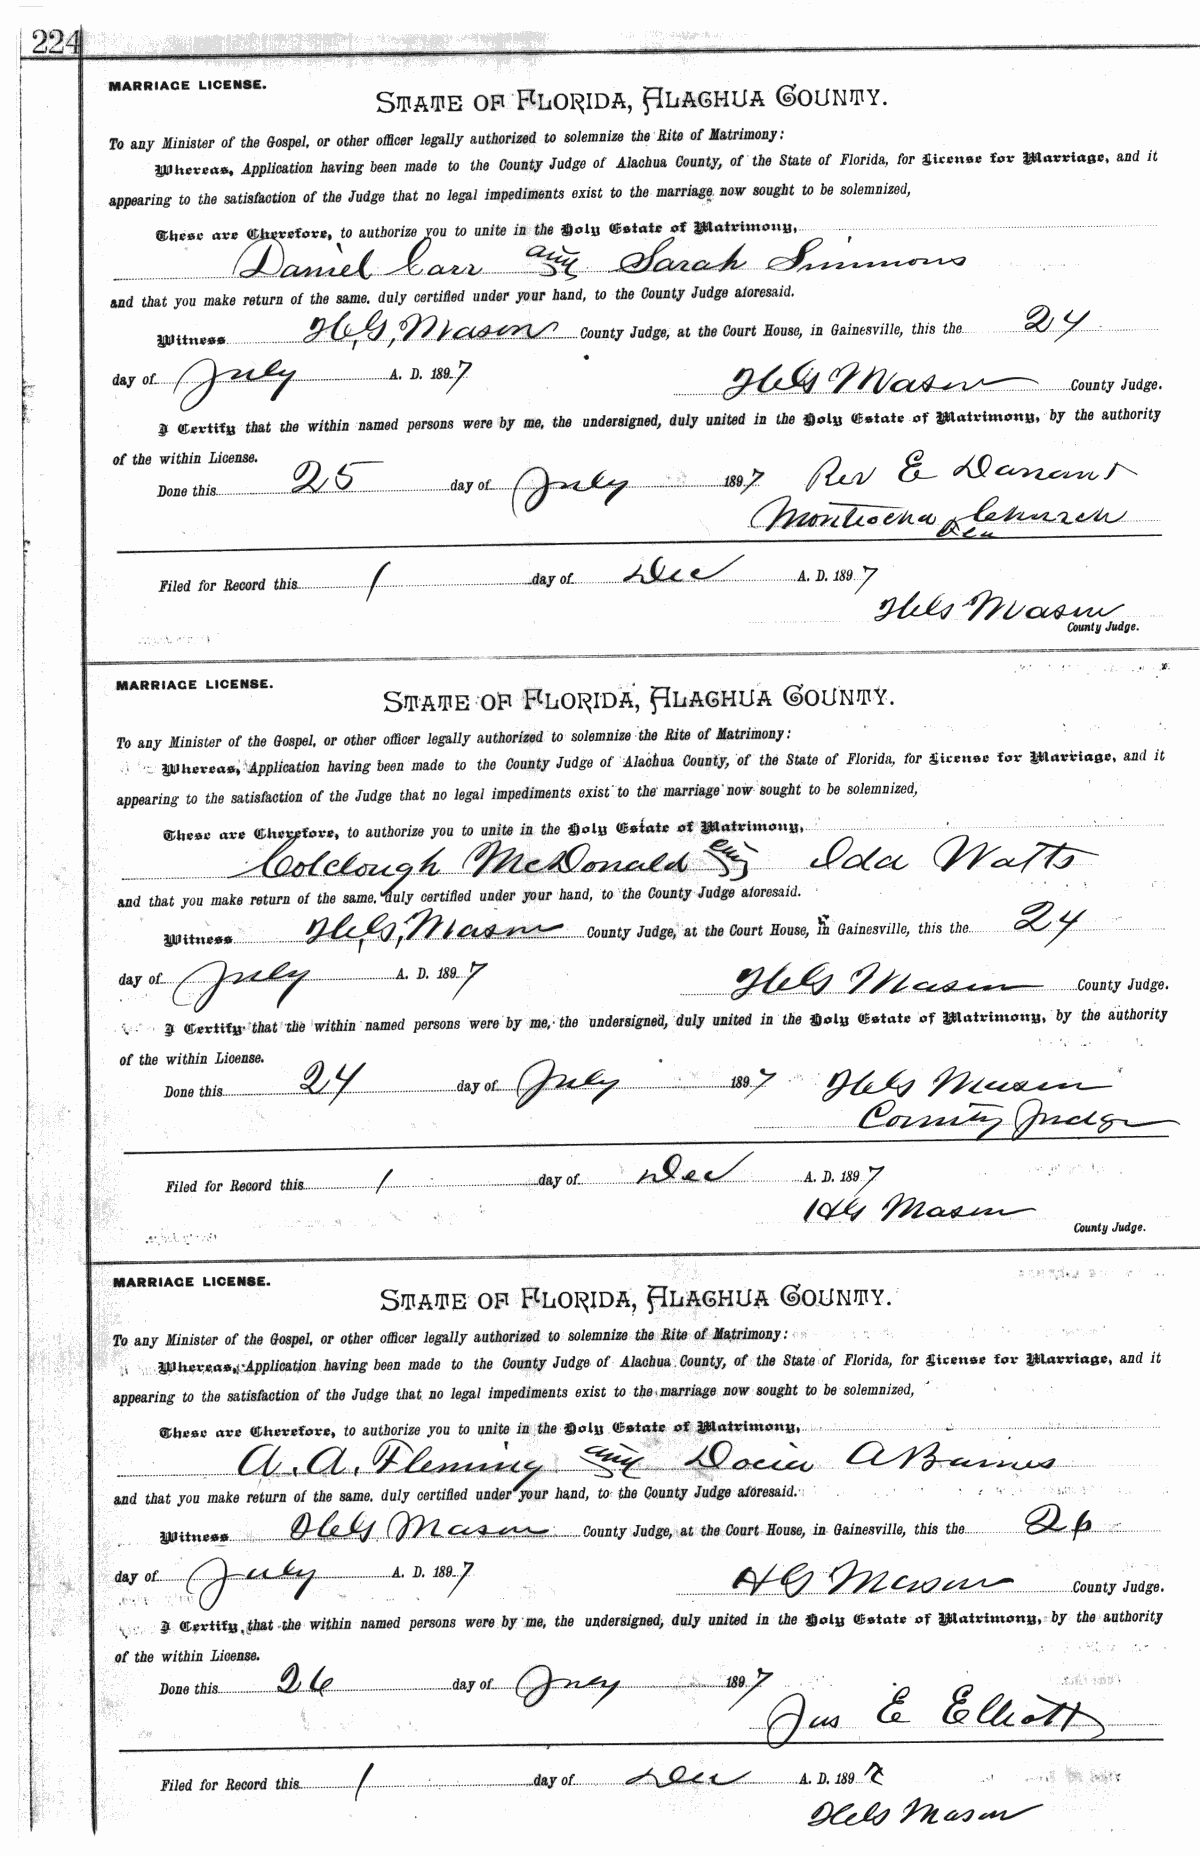 224
MARRIAGE LICENSE.
STATE OF FLORIDA, ALACHUA COUNTY.
To any Minister of the Gospel, or other officer legally authorized to solemnize the Rite of Matrimony:
Whereas, Application having been made to the County Judge of Alachua County, of the State of Florida, for License for Marriage, and it
appearing to the satisfaction of the Judge that no legal impediments exist to the marriage now sought to be solemnized,
These are Therefore, to authorize you to unite in the Holy Estate of Matrimony,
Daniel Carr and Sarah Simmons
and that you make return of the same, duly certified under your hand, to the County Judge aforesaid.
Witness H, G, Mason County Judge, at the Court House, in Gainesville, this the 24
day of July A. D. 1897 H G Mason County Judge.
I Certify that the within named persons were by me, the undersigned, duly united in the Holy Estate of Matrimony, by the authority
of the within License.
Done this 25 day of July 1897 Rev E
Church
Filed for Record this 1 day of Dec A. D. 1897
H G Mason
County Judge.
MARRIAGE LICENSE.
STATE OF FLORIDA, ALACHUA COUNTY.
To any Minister of the Gospel, or other officer legally authorized to solemnize the Rite of Matrimony:
Whereas, Application having been made to the County Judge of Alachua County, of the State of Florida, for License for Marriage, and it
appearing to the satisfaction of the Judge that no legal impediments exist to the marriage now sought to be solemnized,
These are Therefore, to authorize you to unite in the Holy Estate of Matrimony,
Colclough McDonald and Ida Watts
and that you make return of the same, duly certified under your hand, to the County Judge aforesaid.
Witness H, G, Mason County Judge, at the Court House, in Gainesville, this the 24
day of July A. D. 1897 H G Mason County Judge.
I Certify that the within named persons were by me, the undersigned, duly united in the Holy Estate of Matrimony, by the authority
of the within License.
Done this 24 day of July 1897 H G Mason
County Judge
Filed for Record this 1 day of Dec A. D. 1897
H G Mason
County Judge.
MARRIAGE LICENSE.
STATE OF FLORIDA, ALACHUA COUNTY.
To any Minister of the Gospel, or other officer legally authorized to solemnize the Rite of Matrimony:
Whereas, Application having been made to the County Judge of Alachua County, of the State of Florida, for License for Marriage, and it
appearing to the satisfaction of the Judge that no legal impediments exist to the marriage now sought to be solemnized,
These are Therefore, to authorize you to unite in the Holy Estate of Matrimony,
A. A. Fleming and Docia A Barnes
and that you make return of the same, duly certified under your hand, to the County Judge aforesaid.
Witness H G Mason County Judge, at the Court House, in Gainesville, this the 26
day of July A. D. 1897 H G Mason County Judge.
I Certify that the within named persons were by me, the undersigned, duly united in the Holy Estate of Matrimony, by the authority
of the within License.
Done this 26 day of July 1897
Jas E Elliott
Filed for Record this 1 day of Dec A. D. 1897
H G Mason